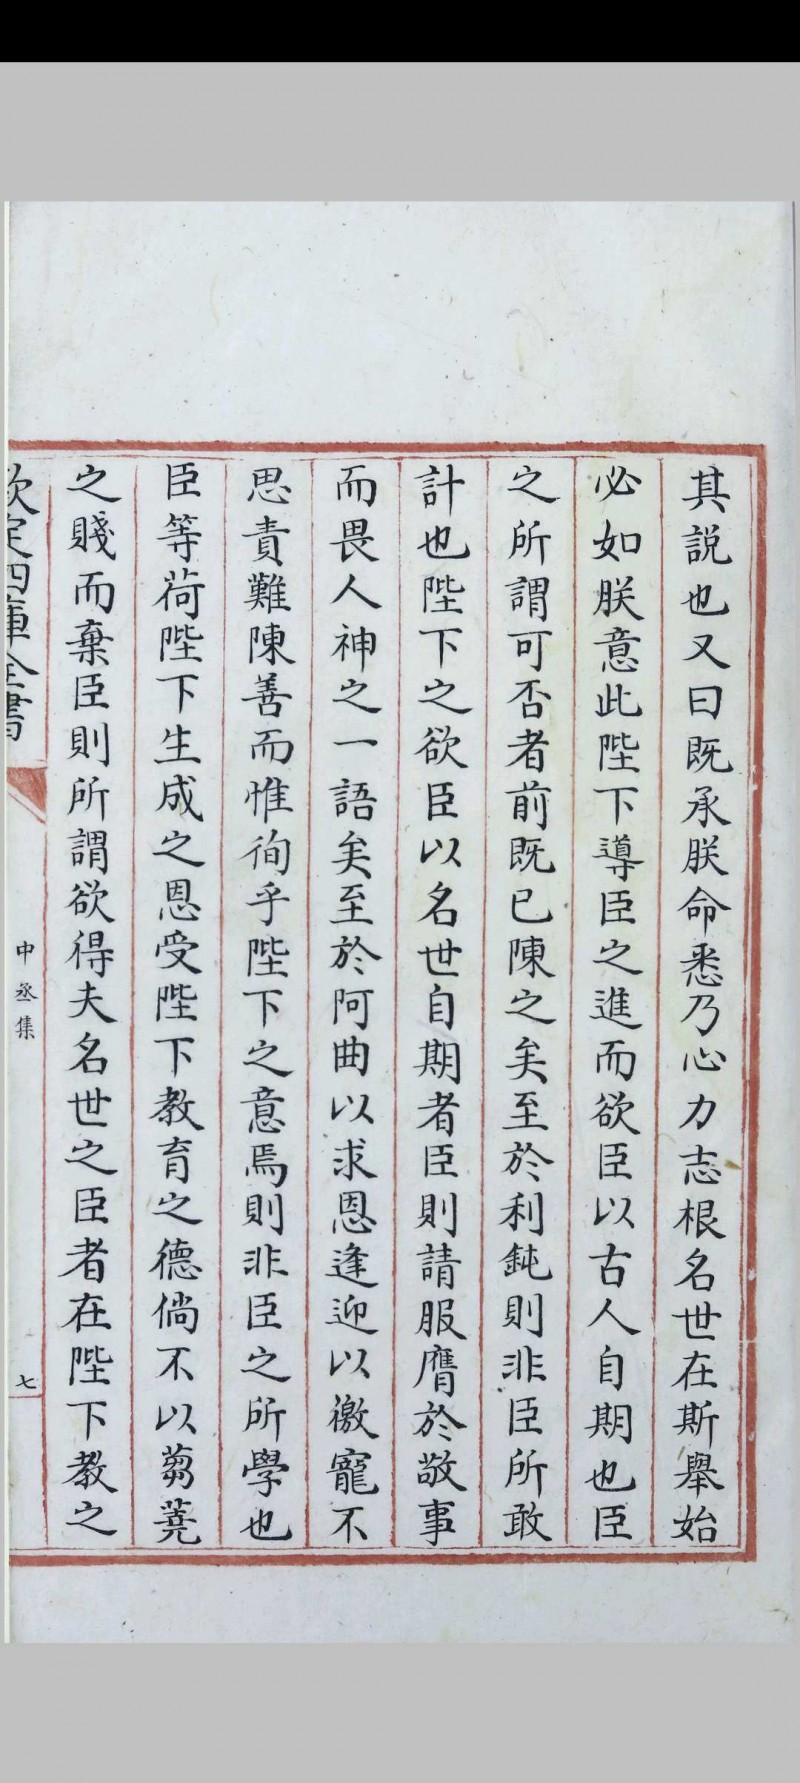 其說也又曰既承朕命悉乃心力志根名世在斯舉始
必如朕意此陛下導臣之進而欲臣以古人自期也臣
之所謂可否者前既已陳之矣至於利鈍則非臣所敢
計也陛下之欲臣以名世自期者臣則請服膺於敬事
而畏人神之一語矣至於阿曲以求恩逢迎以徼寵不
思責難陳善而惟徇乎陛下之意焉則非臣之所學也
臣等荷陛下生成之恩受陛下教育之德倘不以蒭蕘
之賤而棄臣則所謂欲得夫名世之臣者在陛下教之
欽定四庫全書
中丞集
七